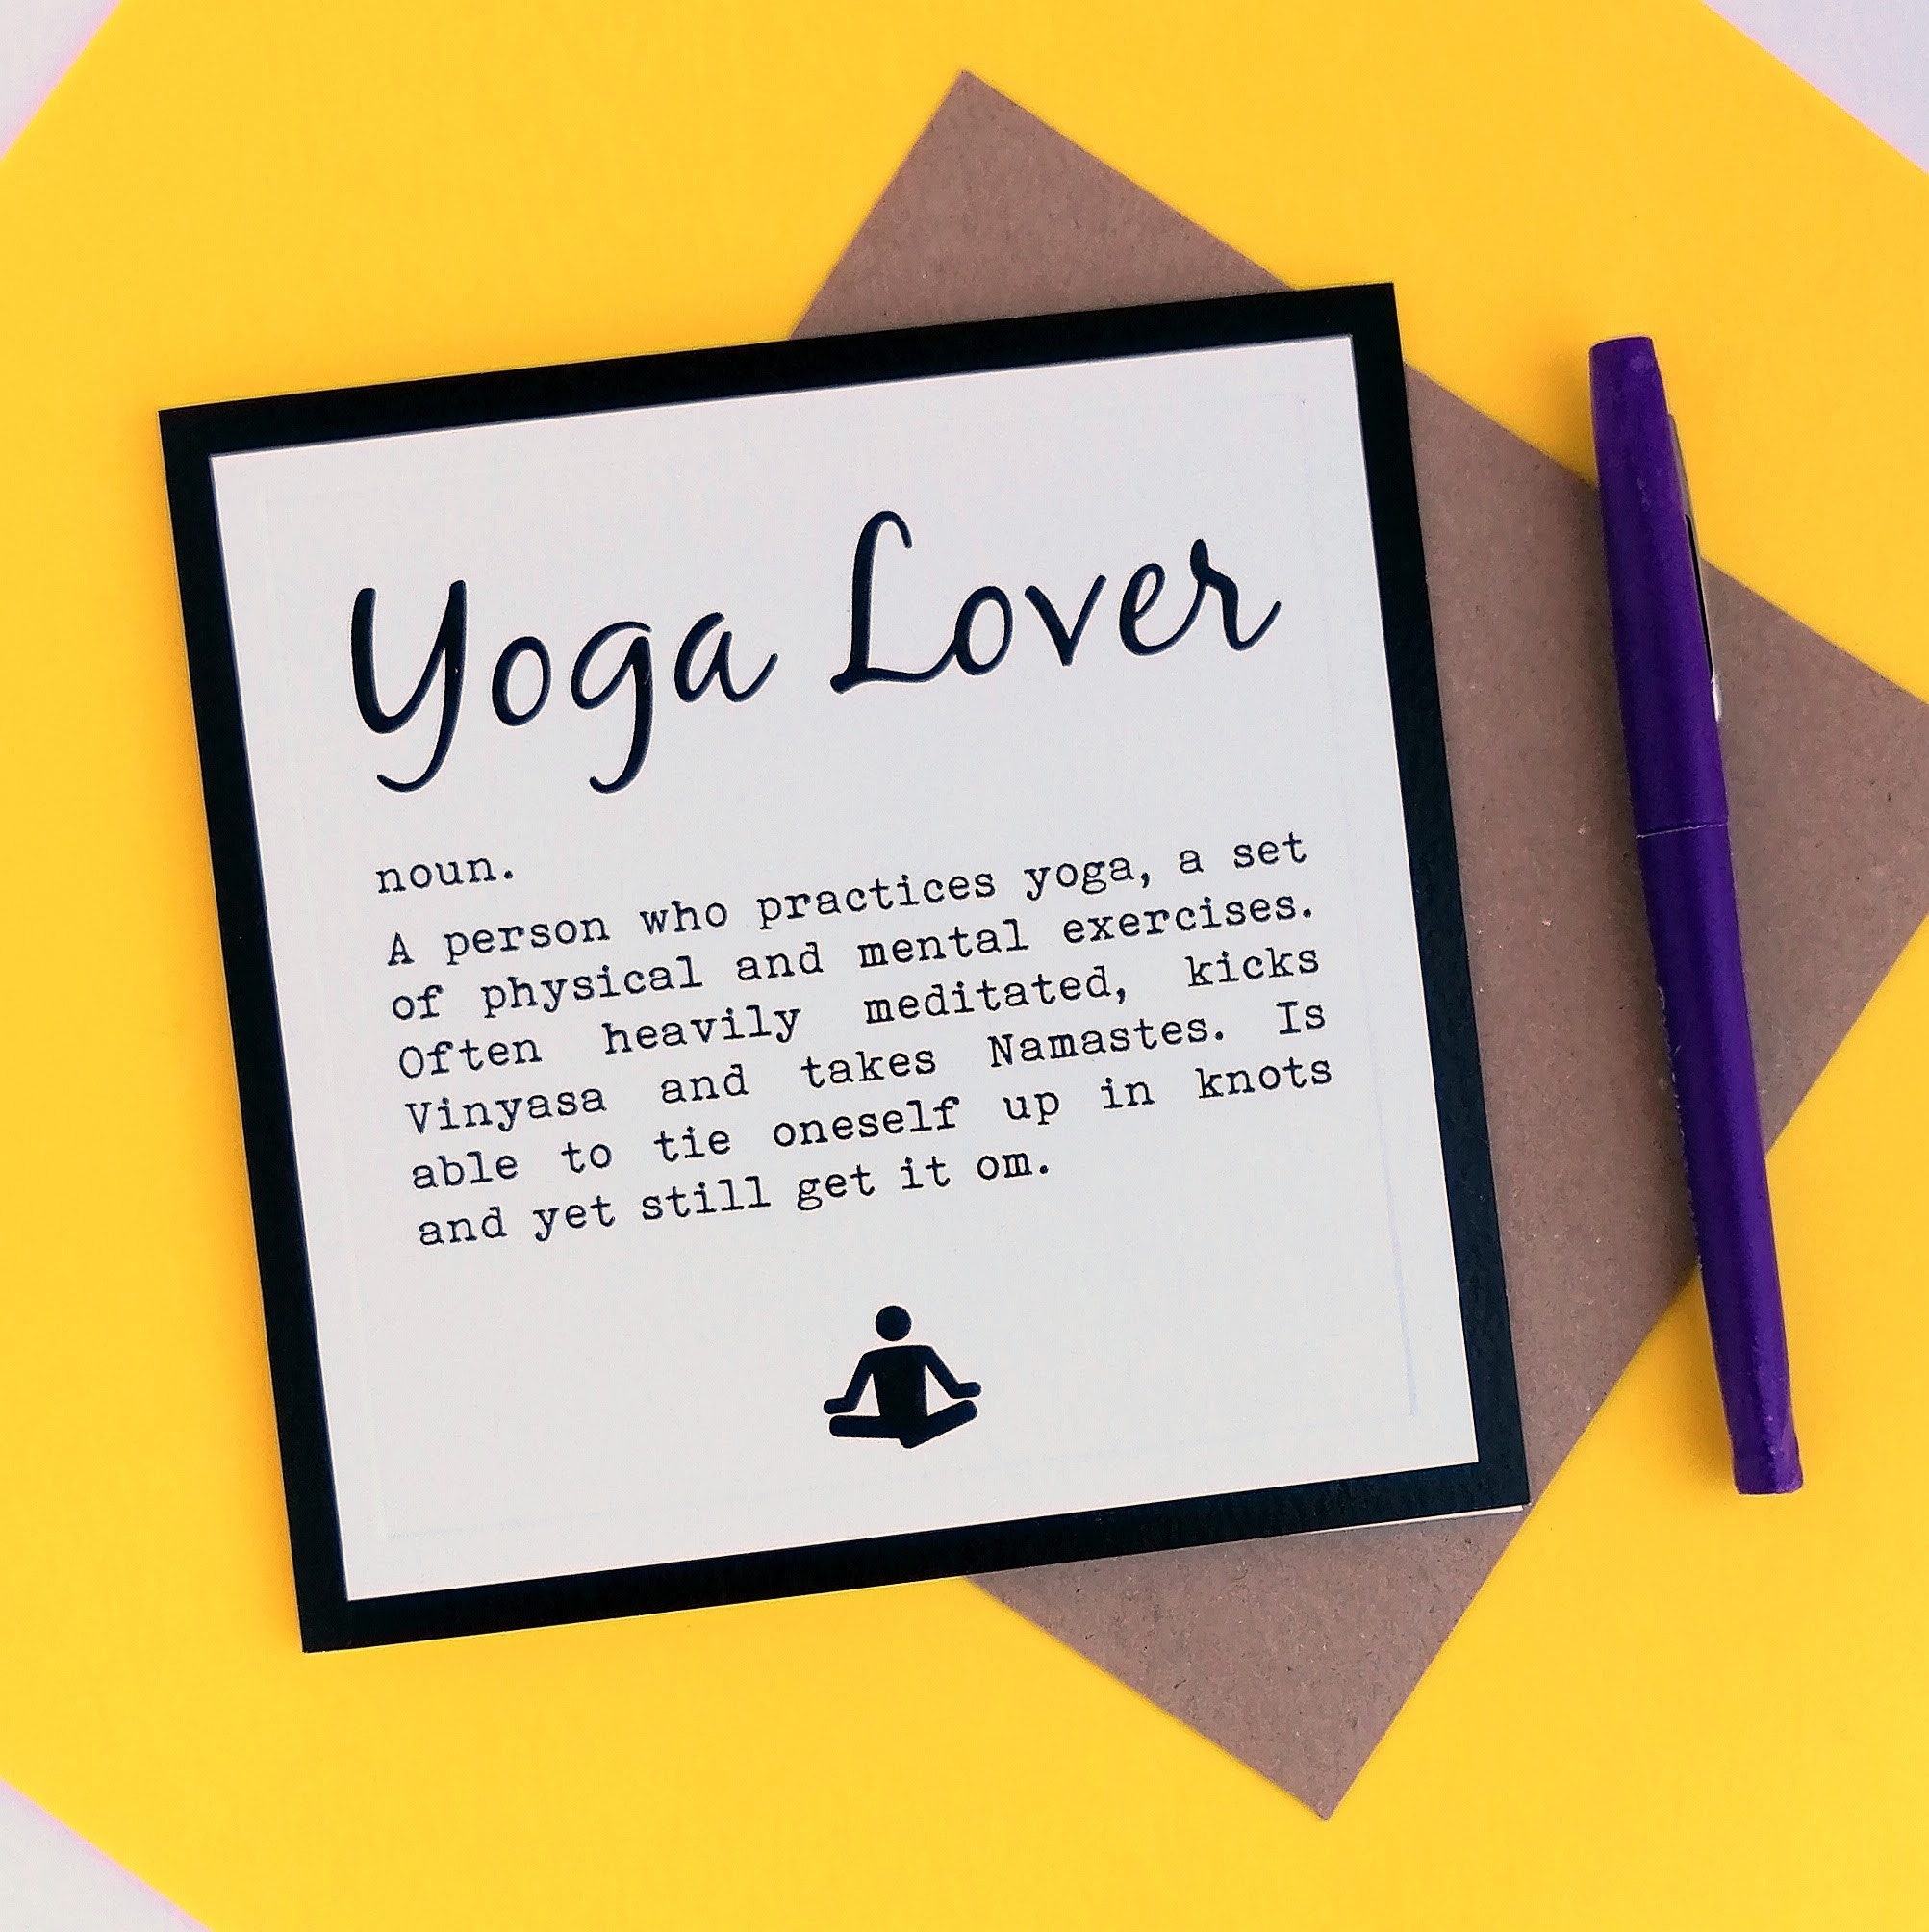 Yoga Lover
noun.
A person who practices yoga, a set
of physical and mental exercises.
Often heavily meditated, kicks
Vinyasa and takes Namastes. Is
able to tie oneself up in knots
and yet still get it om.